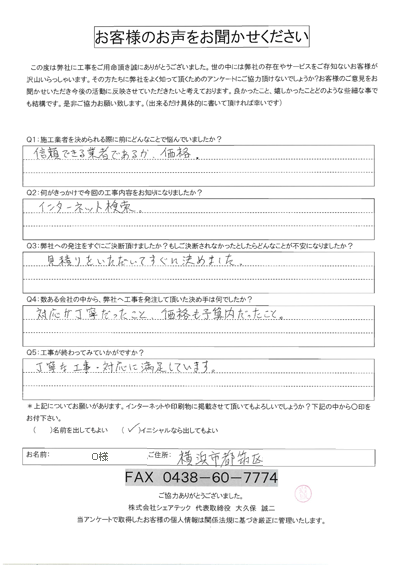 お客様のお声をお聞かせください
この度は弊社に工事をご用命頂き誠にありがとうございました。世の中には弊社の存在やサービスをご存知ないお客様が
沢山いらっしゃいます。その方たちに弊社をよく知って頂くためのアンケートにご協力頂けないでしょうか?お客様のご意見をお
聞かせいただき今後の活動に反映させていただきたいと考えております。良かったこと、嬉しかったことどのような些細な事で
も結構です。是非ご協力お願い致します。(出来るだけ具体的に書いて頂ければ幸いです)
Q1:施工業者を決められる際に前にどんなことで悩んでいましたか?
信頼できる業者であるか、価格。
Q2:何がきっかけで今回の工事内容をお知りになりましたか?
インターネット検索。
Q3:弊社への発注をすぐにご決断頂けましたか?もしご決断されなかったとしたらどんなことが不安になりましたか?
見積りをいただいてすぐに決めました。
Q4:数ある会社の中から、弊社へ工事を発注して頂いた決め手は何でしたか?
対応が丁寧だったこと、価格も予算内だったこと。
Q5:工事が終わってみていかがですか?
丁寧な工事・対応に満足しています。
*上記についてお願いがあります。インターネットや印刷物に掲載させて頂いてもよろしいでしょうか?下記の中から〇印を
お付下さい。
( )名前を出してもよい (✓)イニシャルなら出してもよい
お名前: O様 ご住所: 横浜市都筑区
FAX 0438-60-7774
ご協力ありがとうございました。
株式会社シェアテック 代表取締役 大久保 誠二
当アンケートで取得したお客様の個人情報は関係法規に基づき厳正に管理いたします。